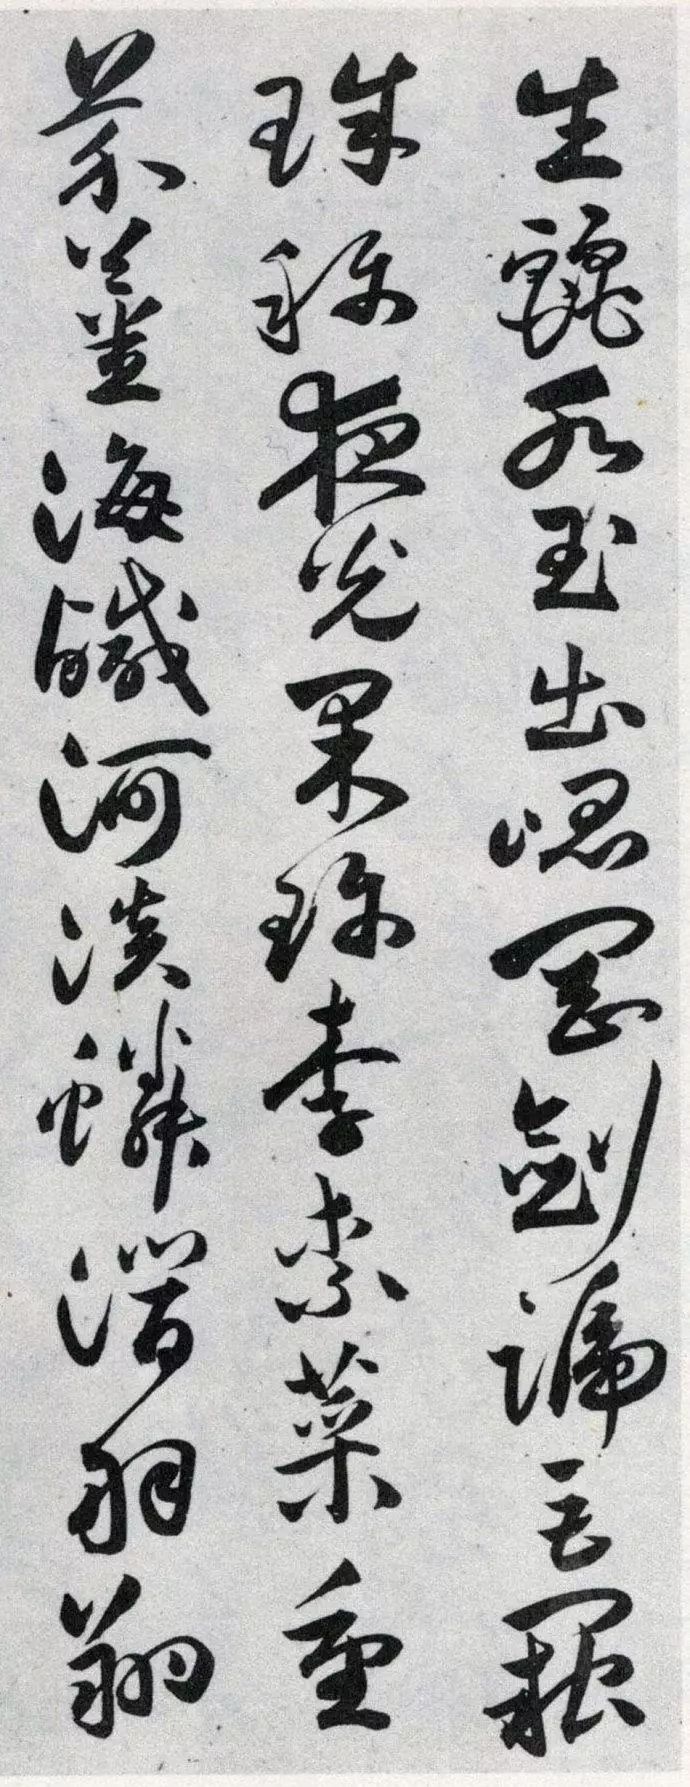 生麗水玉出崐罡劍號巨闕
珠称夜光果珍李柰菜重
芥薑海鹹河淡鱗潛羽翔